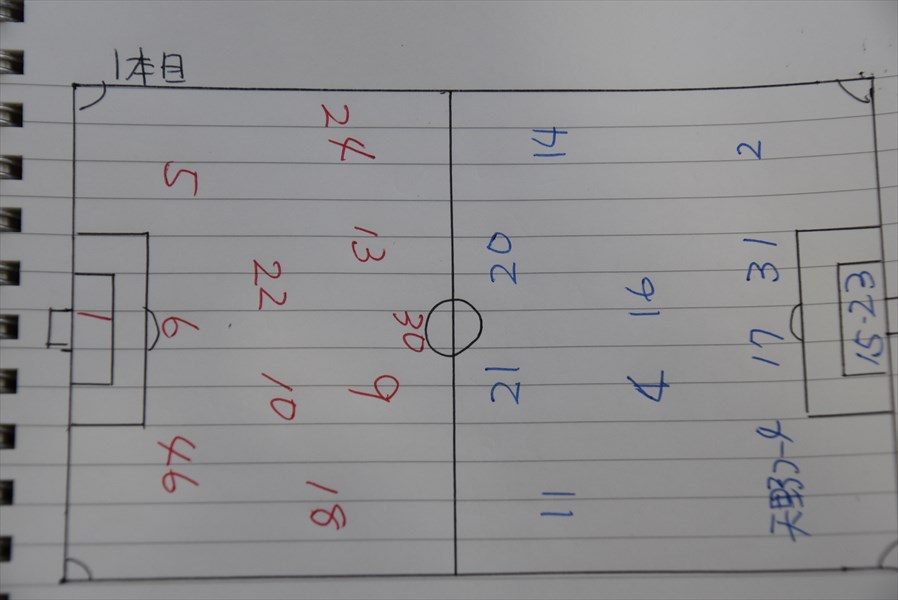 1本目
24
5
13
22
1
6
30
10
9
46
18
14
2
20
31
16
15・23
17
21
4
11